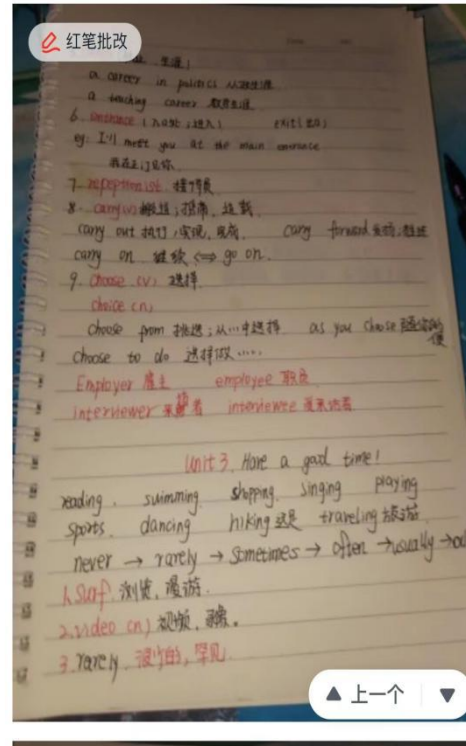 红笔批改
生涯
a career in politics 从政生涯
a teaching career 教育生涯
6. entrance (入口;进入) exit(出口)
eg: I'll meet you at the main entrance
7. 接待员
8. carry(v) 搬运;携带,运载
carry out 执行,实现,完成. carry forward 发扬;推进
carry on 继续 <=> go on.
9. choose (v) 选择
choice (n)
choose from 挑选;从…中选择 as you choose
choose to do 选择做……
Employer 雇主 employee 职员
interviewer interviewee
Unit 3. Have a good time!
reading. swimming. shopping. singing playing
sports. dancing hiking traveling 旅游
never → rarely → sometimes → often → usually →
1. surf. 浏览,漫游.
2. video (n) 视频,录像。
3. rarely. 很少的,罕见.
▲ 上一个 ▼